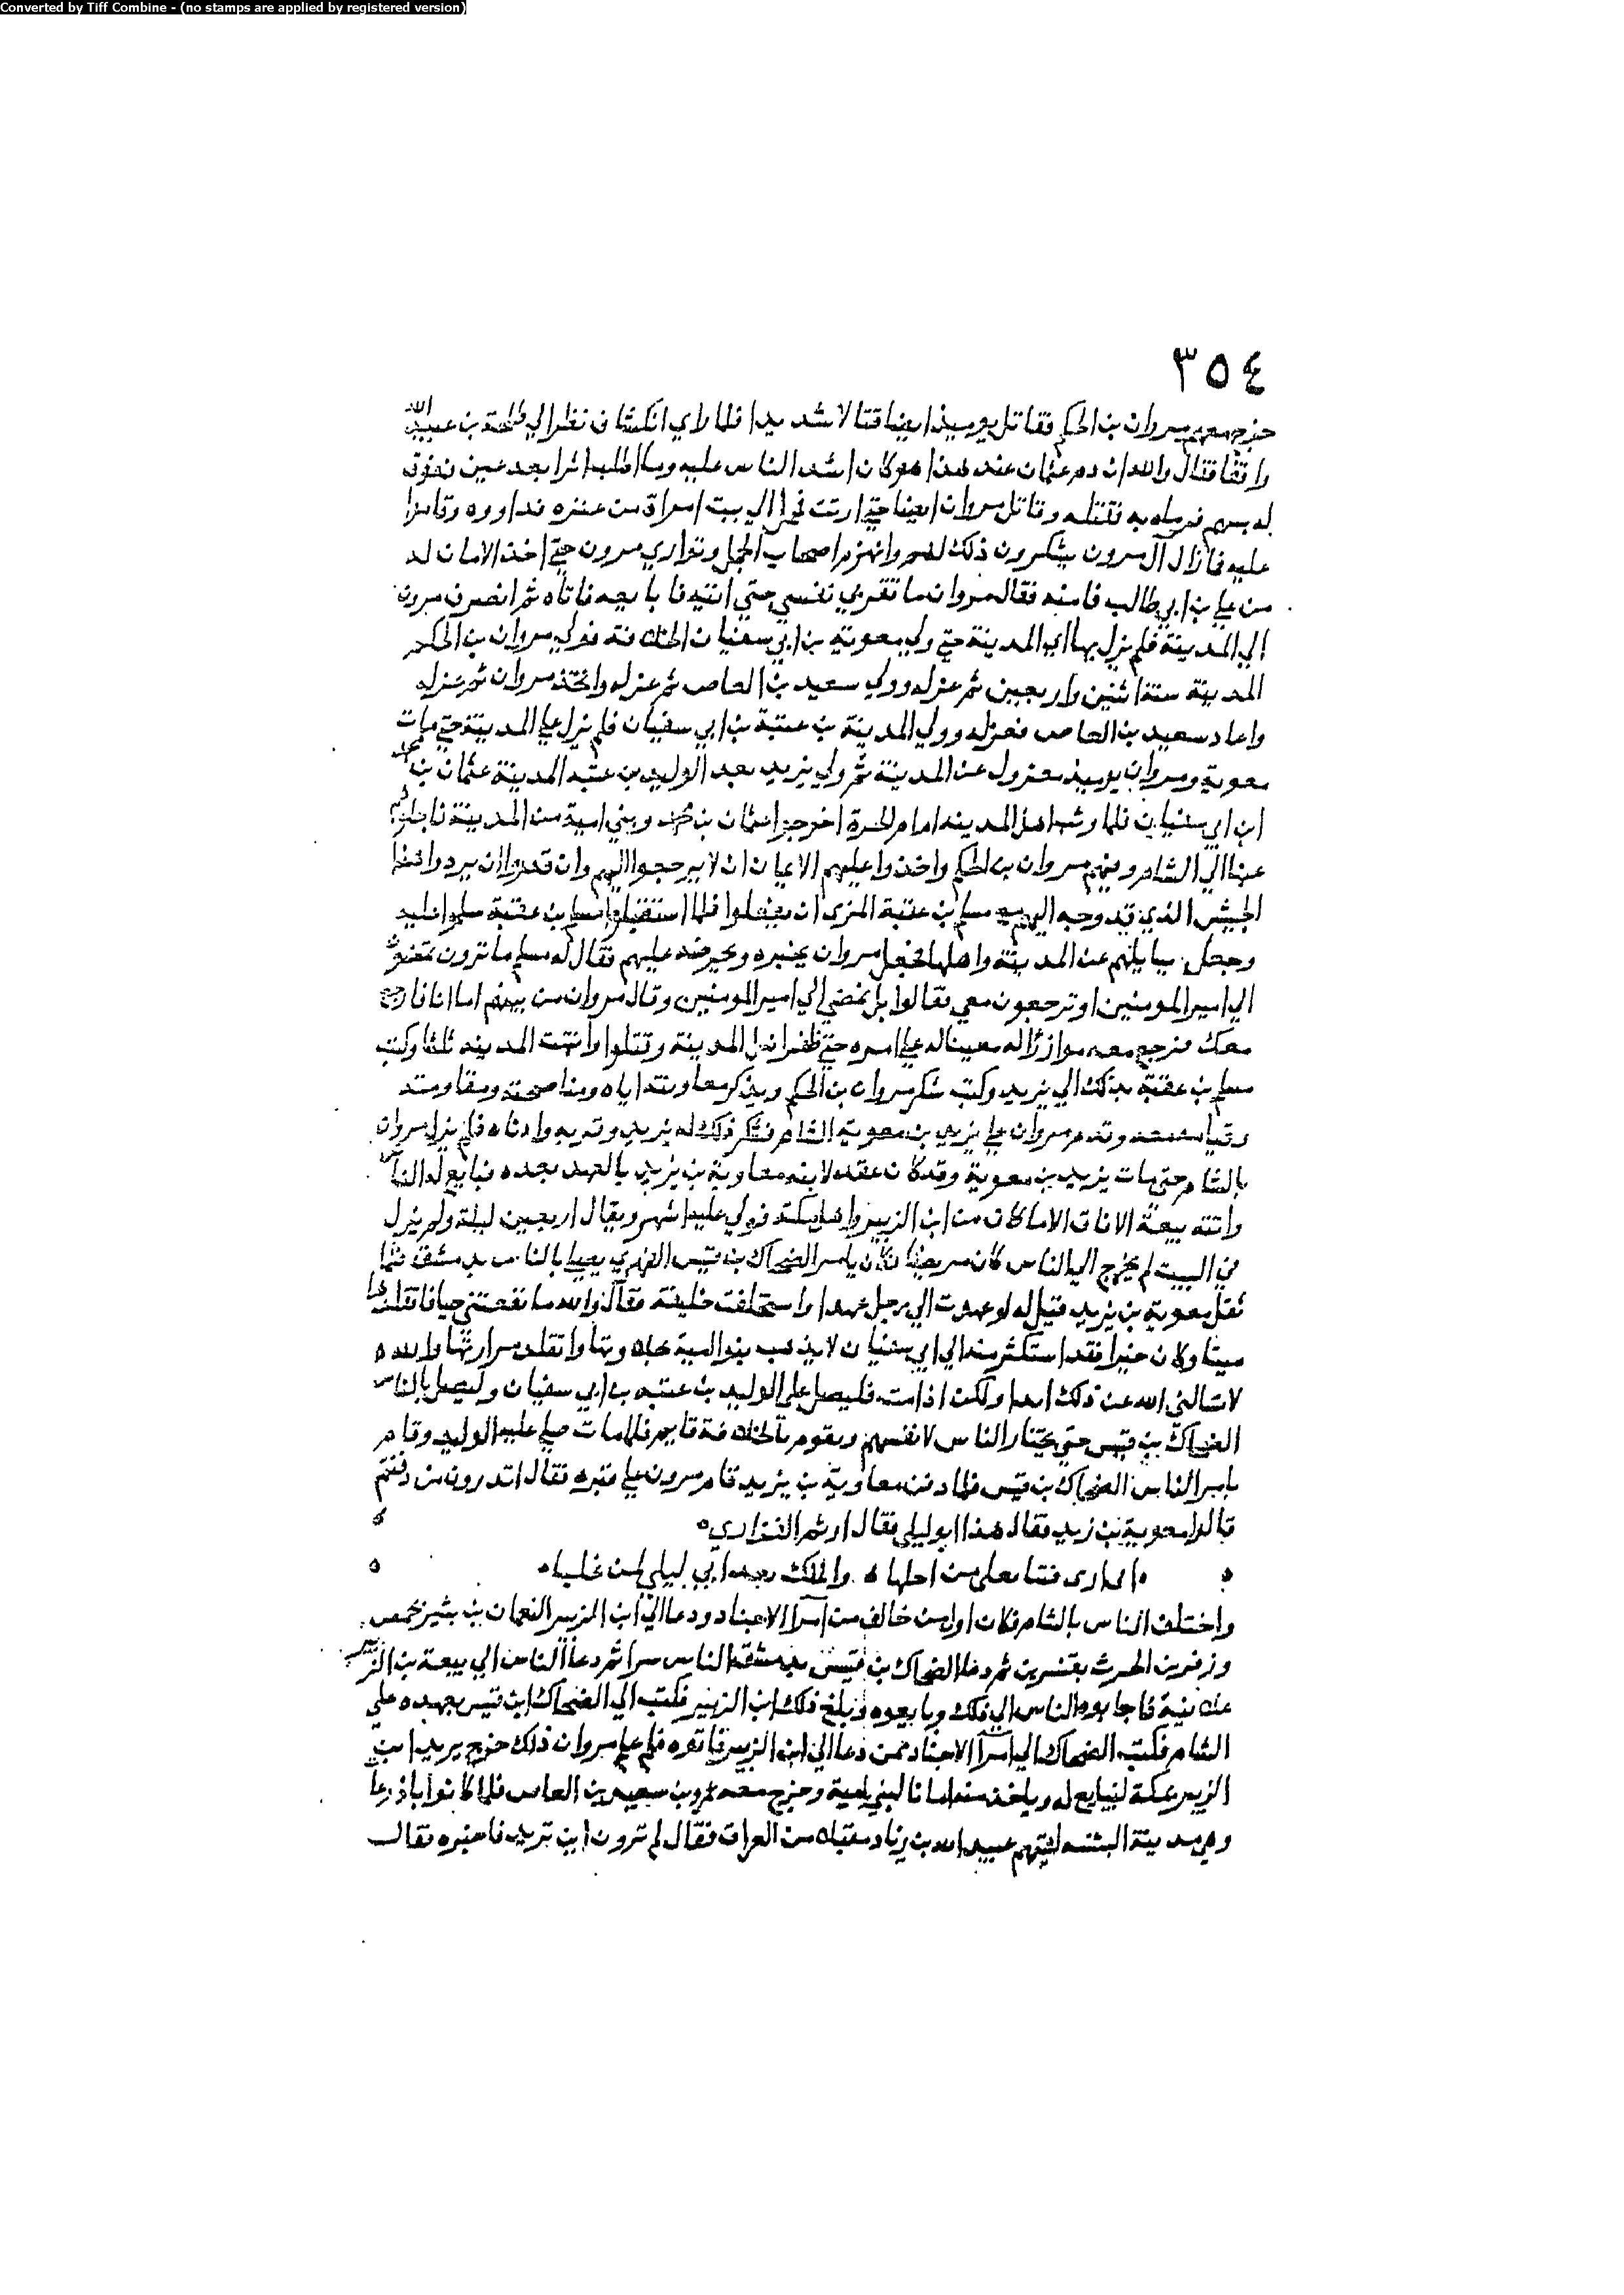 Converted by Tiff Combine - (no stamps are applied by registered version)
٣٥٤
خرج معهم مروان بن الحكم فقاتل يوميذ ايضا قتالا شديدا فلما راي انكشاف نظر الي طلحة بن عبيد الله
واقفا فقال والله ان دم عثمان عند هذا هو كان اشد الناس عليه وما اطلب اثرا بعد عين ففوق
له بسهم فرماه به فقتله وقاتل مروان ايضا حتي ارتث فحمل الي بيت امراة من عنزه فداووه وقاموا
عليه فما زال آل مرون يشكرون ذلك لهم وانهزم اصحاب الجمل وتواري مرون حتي اخذ الامان له
من علي بن ابي طالب فامنه فقال مروان ما تقرني نفسي حتي اتيه فابايعه فاتاه ثم انصرف مرون
الي المدينة فلم يزل بها حتي ولي معوية بن ابي سفيان الخلافة فولي مروان بن الحكم
المدينة سنة اثنين واربعين ثم عزله وولي سعيد بن العاص ثم عزله واتخذ مروان ثم عزله
واعاد سعيد بن العاص فعزله وولي المدينة بن عتبة بن ابي سفيان فلم يزل علي المدينة حتي مات
معوية ومروان يوميذ معزول عن المدينة ثم ولي يزيد بعد الوليد بن عتبه المدينة عثمان بن محمد
ابن ابي سفيان فلما وثب اهل المدينه ايام الحرة اخرجوا عثمان بن محمد وبني امية من المدينة فاجلوهم
عنها الي الشام وفيهم مروان بن الحكم واخذوا عليهم الايمان ان لا يرجعوا اليهم وان قدروا ان يردوا هذا
الجيش الذي قد وجه اليهم مع مسلم بن عقبة المزي ان يفعلوا فلما استقبلوا مسلم بن عقبة سلموا عليه
وجعل يسايلهم عن المدينة واهلها فجعل مروان يخبره ويحرضه عليهم فقال له مسلم ما ترون تمضون
الي امير المومنين او ترجعون معي فقالوا بل نمضي الي امير المومنين وقال مروان من بينهم اما انا فارجع
معك فرجع معه موازرا له معينا له علي امره حتي ظفر باهل المدينة وقتلوا وانتهبت المدينه ثلثا وكتب
مسلم بن عقبة بذلك الي يزيد وكتب شكر مروان بن الحكم ويذكر معاونته اياه ومناصحته ومقاومته
وقيامه معه وقدم مروان علي يزيد بن معوية الشام فشكر ذلك له يزيد وقربه وادناه فلم يزل مروان
بالشام حتي مات يزيد بن معوية وقد كان عقد لابنه معاوية بن يزيد بالعهد بعده فبايع له الناس
واتته بيعة الافاق الا ما كان من ابن الزبير واهل مكة فولي عليه اشهر ويقال اربعين ليلة ولم يزل
في البيت لم يخرج الي الناس كان مريضا فكان يامر الضحاك بن قيس الفهري يصلي بالناس بدمشق فلما
ثقل معوية بن يزيد قيل له لو عهدت الي رجل عهدا واستخلفت خليفة فقال والله ما نفعتني حيا فاتقلدها
ميتا وكان خيرا فقد استكثر منه الي ابي سفيان لا يذهب بنو امية بحلاوتها واتقلد مرارتها والله
لا يسالني الله عن ذلك ابدا ولكن اذا مت فليصل علي الوليد بن عتبه بن ابي سفيان وليصل بالناس
الضحاك بن قيس حتي يختار الناس لانفسهم ويقوم بالخلافة قايم فلما مات صلي عليه الوليد وقام
بامر الناس الضحاك بن قيس فلما دفن معاوية بن يزيد قام مرون علي قبره فقال اتدرون من دفنتم
قالوا معوية بن يزيد فقال هذا ابو ليلي فقال ازنم الفزاري
اني اري فتنا تغلي مراجلها والملك بعد ابي ليلي لمن غلبا
واختلف الناس بالشام فكان اول من خالف من امرآ الاجناد ودعا الي ابن الزبير النعمان بن بشير بحمص
وزفر بن الحرث بقنسرين ثم دعا الضحاك بن قيس بدمشق الناس سرا ثم دعا الناس الي بيعة بن الزبير
علانية فاجابوه الناس الي ذلك وبايعوه وبلغ ذلك ابن الزبير فكتب الي الضحاك ابن قيس بعهده علي
الشام فكتب الضحاك الي امرآ الاجناد ممن دعا الي ابن الزبير فاتوه فلم علم مروان ذلك خرج يريد ابن
الزبير بمكة ليبايع له وياخذ منه امانا لبني امية وخرج معه عمرو بن سعيد بن العاص فلما كانوا باذرعا
وهي مدينة البثنه لقيهم عبيد الله بن زياد مقبلا من العراق فقال لم ترون اين تريد فاخبره فقال